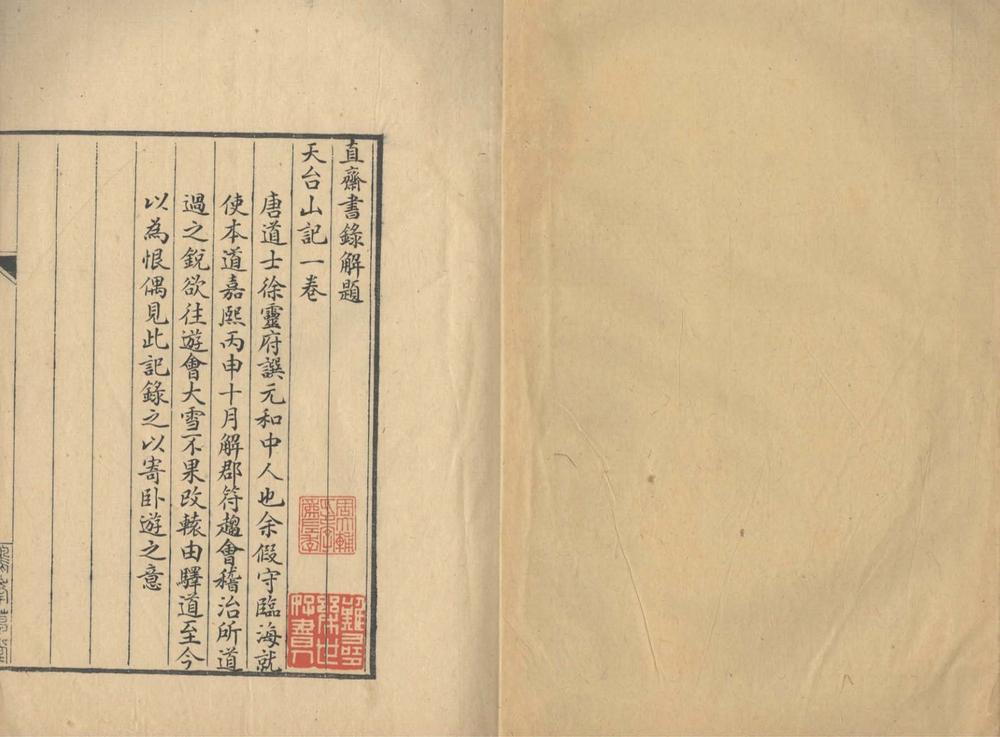 直齋書錄解題
天台山記一卷
唐道士徐靈府譔元和中人也余假守臨海就
使本道嘉熙丙申十月解郡符趨會稽治所道
過之銳欲往遊會大雪不果改轅由驛道至今
以為恨偶見此記錄之以寄卧遊之意